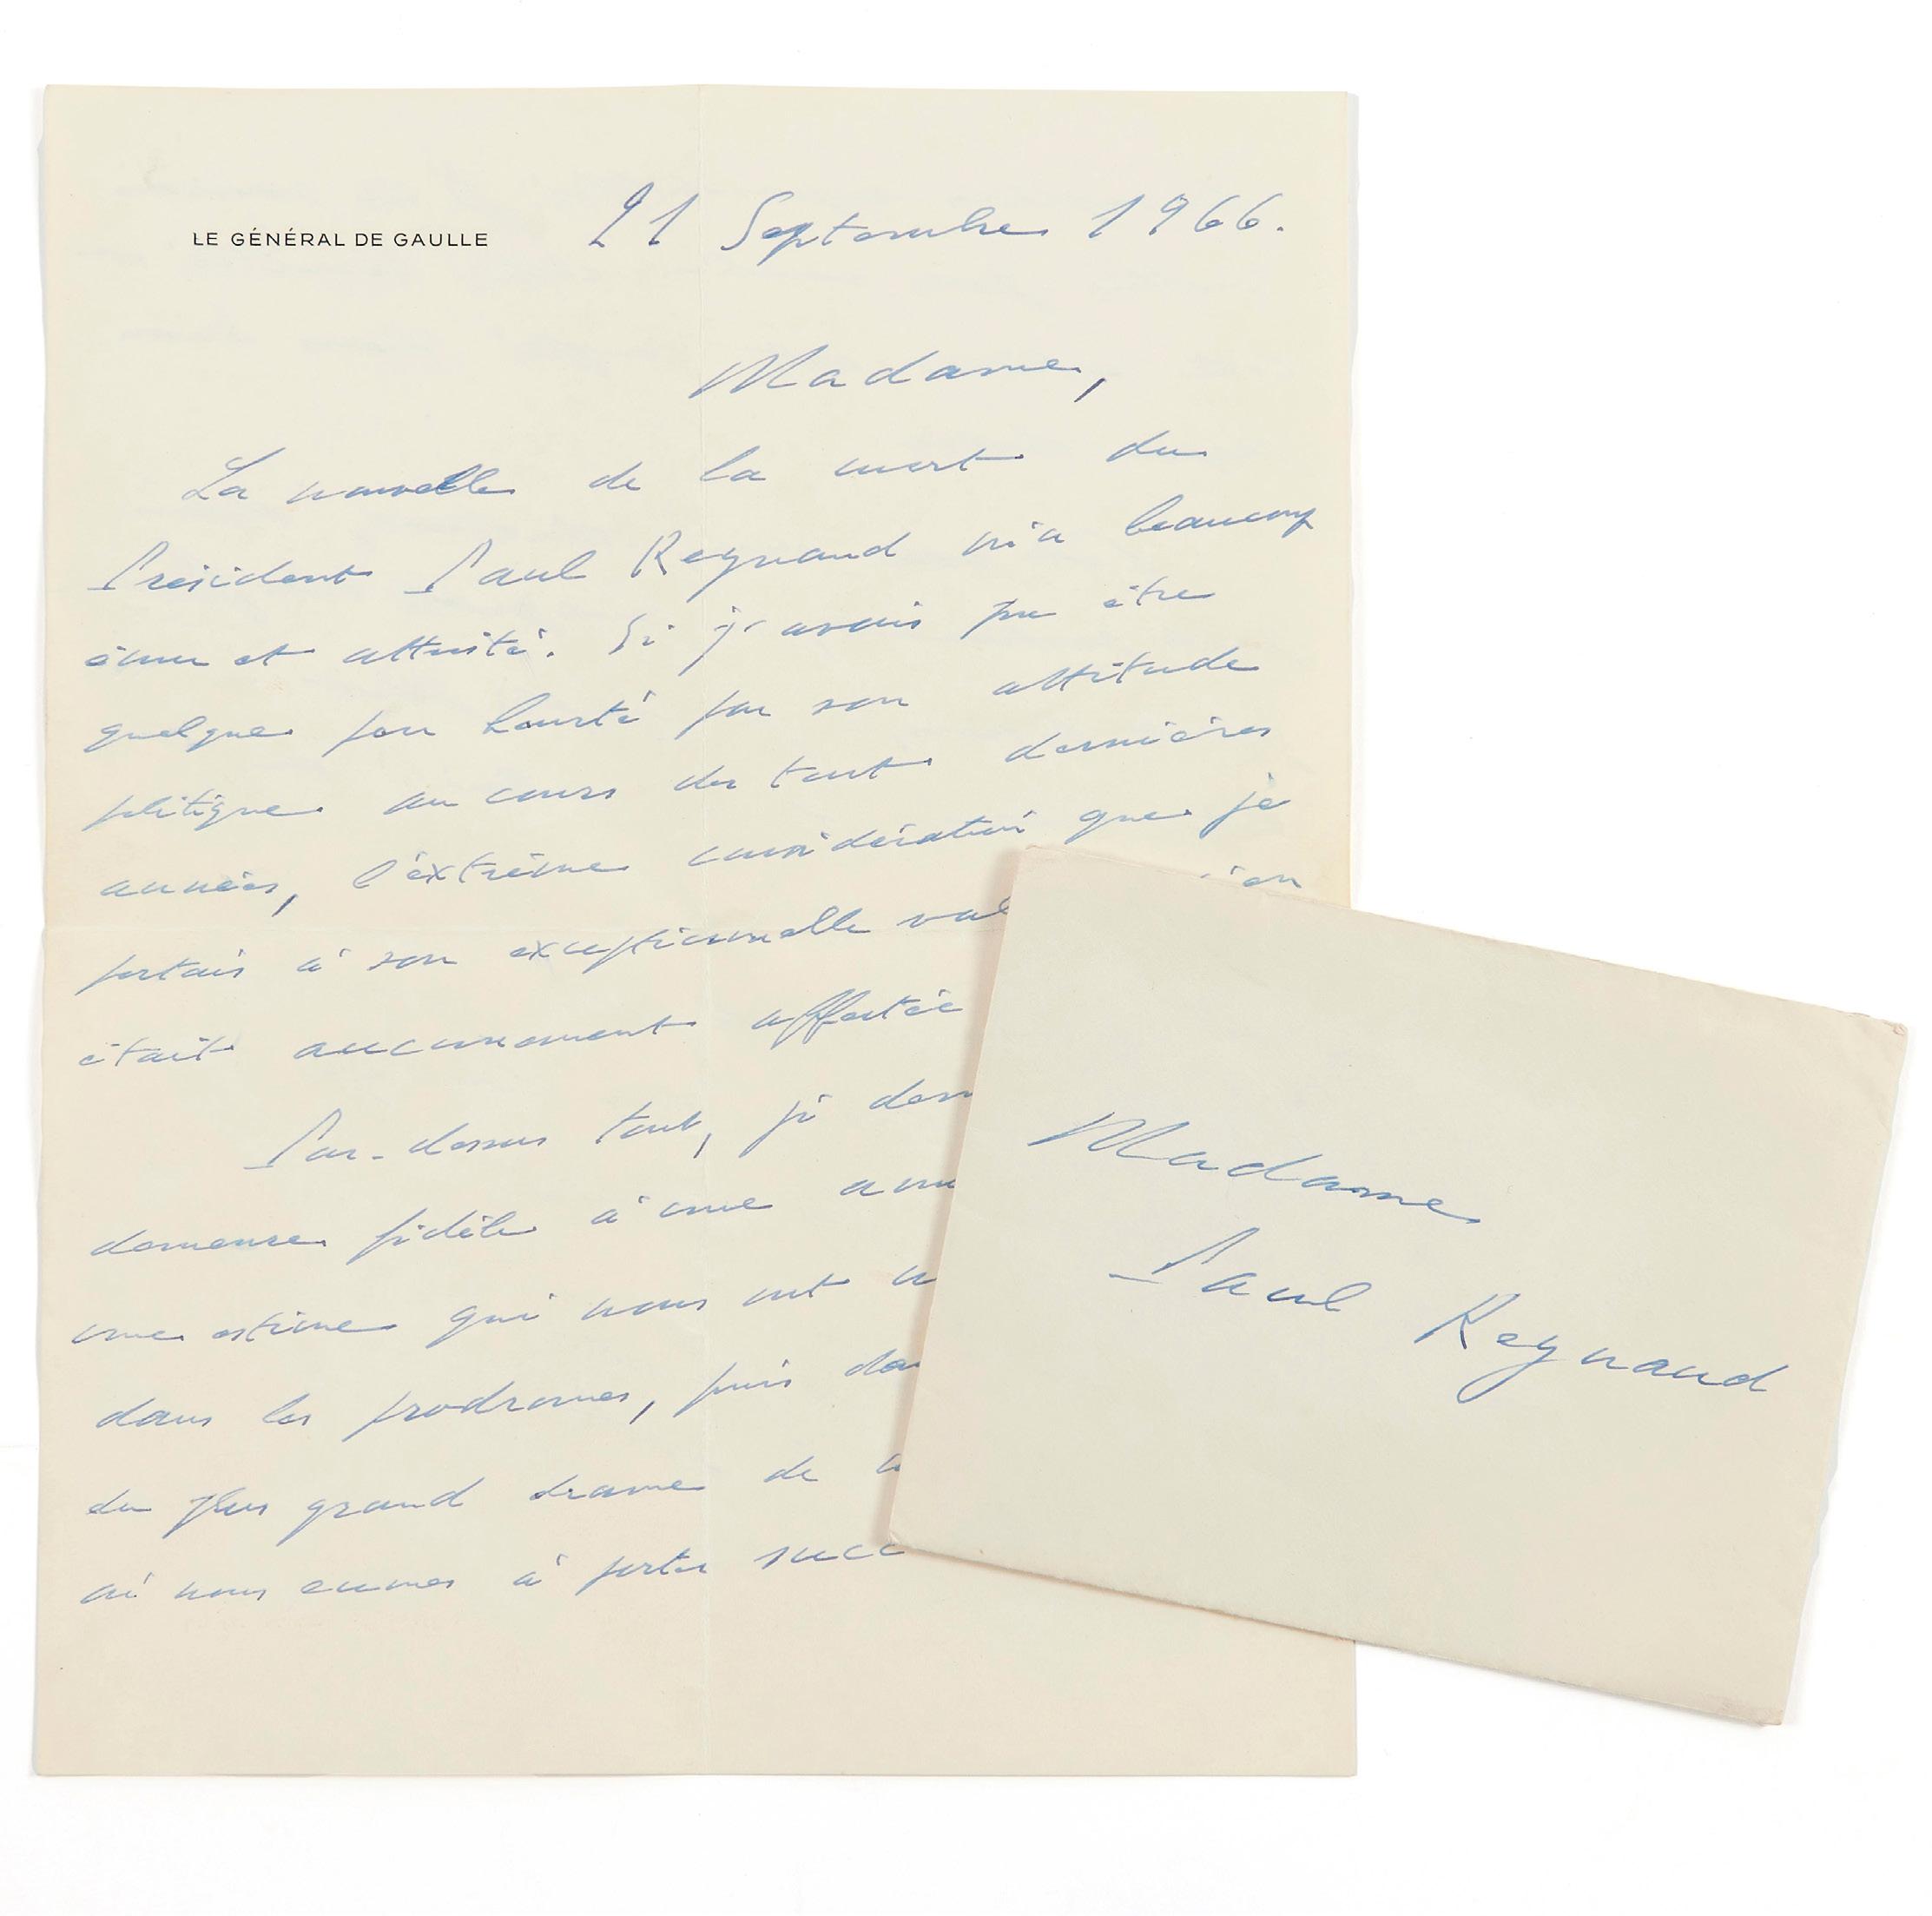 LE GÉNÉRAL DE GAULLE
21 Septembre 1966.
Madame,
La nouvelle de la mort du
Président Paul Reynaud m'a beaucoup
ému et attristé. Si j'avais pu être
quelque peu heurté par son attitude
politique au cours des toutes dernières
années, l'extrême considération que je
portais à son exceptionnelle val
était aucunement affectée
Par-dessus tout, je
demeure fidèle à une
une estime qui nous ont
dans les prodromes, puis
du plus grand drame de
où nous eûmes à porter succ
Madame
Paul Reynaud